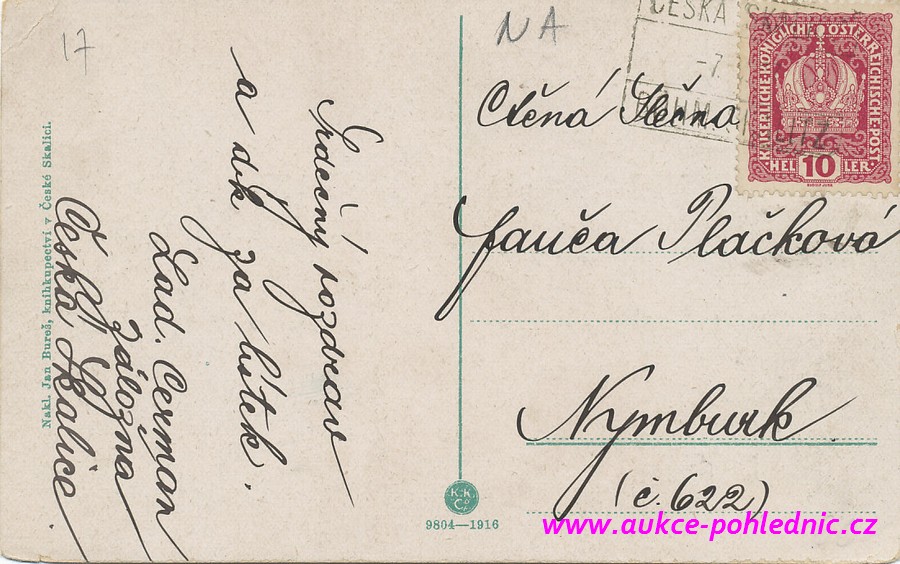 17
Srdečný pozdrav
a dík za lístek.
Lad. Cerman
záložna
Česká Skalice.
Nakl. Jan Bureš, knihkupectví v České Skalici.
K.K.
Co.
9804—1916
NA
ČESKÁ SKAL
-7.
KAISERLICHE·KÖNIGLICHE ÖSTERREICHISCHE·POST
HEL LER
10
Ctěná Slečna
Plačková
Nymburk
(č. 622)
www.aukce-pohlednic.cz